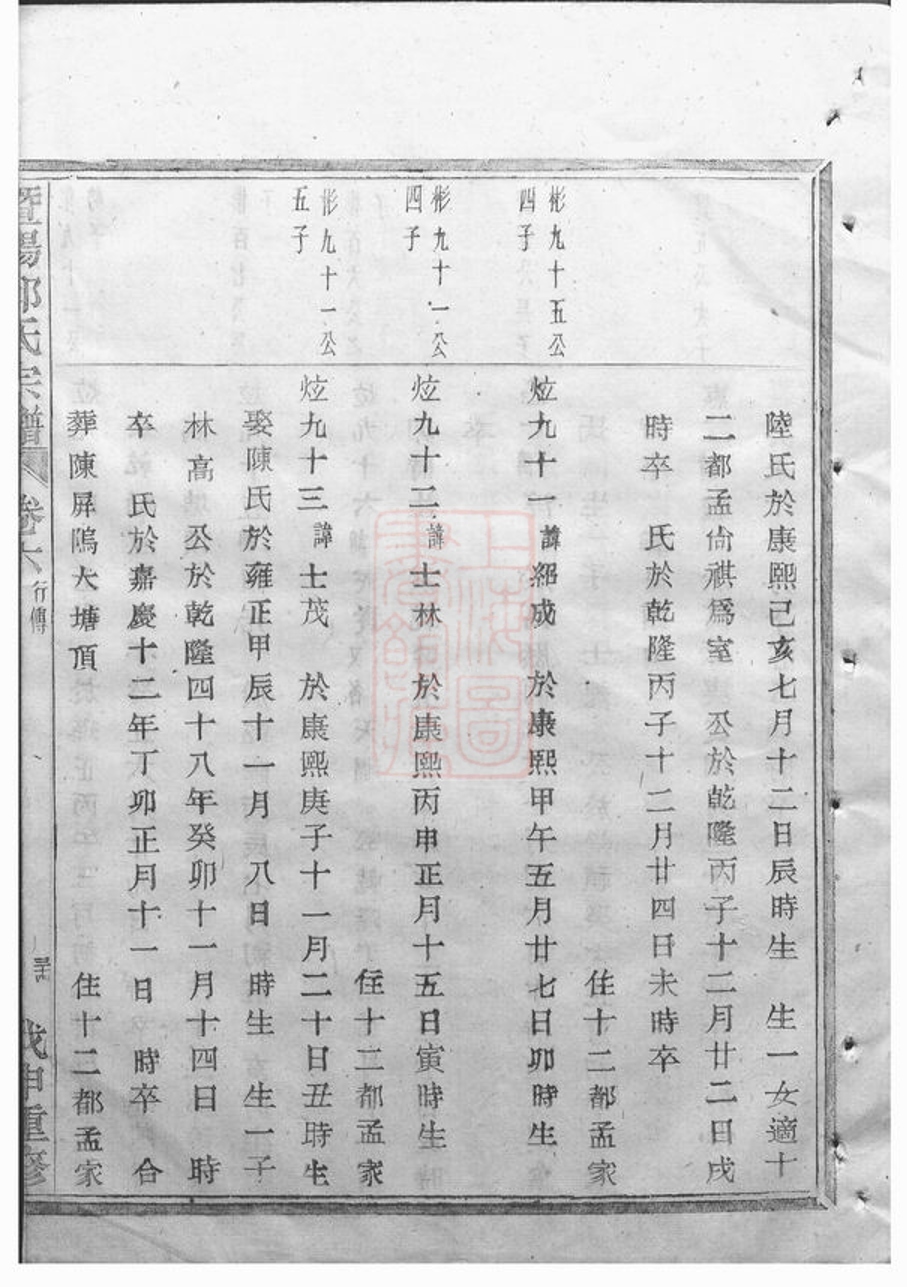 陸氏於康熙己亥七月十二日辰時生 生一女適十
二都孟尙祺爲室 公於乾隆丙子十二月廿二日戌
時卒 氏於乾隆丙子十二月廿四日未時卒
住十二都孟家
彬九十五公
四子
炫九十一諱紹成 於康熙甲午五月廿七日卯時生
住十二都孟家
彬九十一公
四子
炫九十二諱士林 於康熙丙申正月十五日寅時生
彬九十一公
五子
炫九十三諱士茂 於康熙庚子十一月二十日丑時生
娶陳氏於雍正甲辰十一月 八日 時生 生一子
林高 公於乾隆四十八年癸卯十一月十四日 時
卒 氏於嘉慶十二年丁卯正月十一日 時卒 合
葬陳屏隖大塘頂 住十二都孟家
暨陽 氏宗譜 卷六 行傳 戊申重修